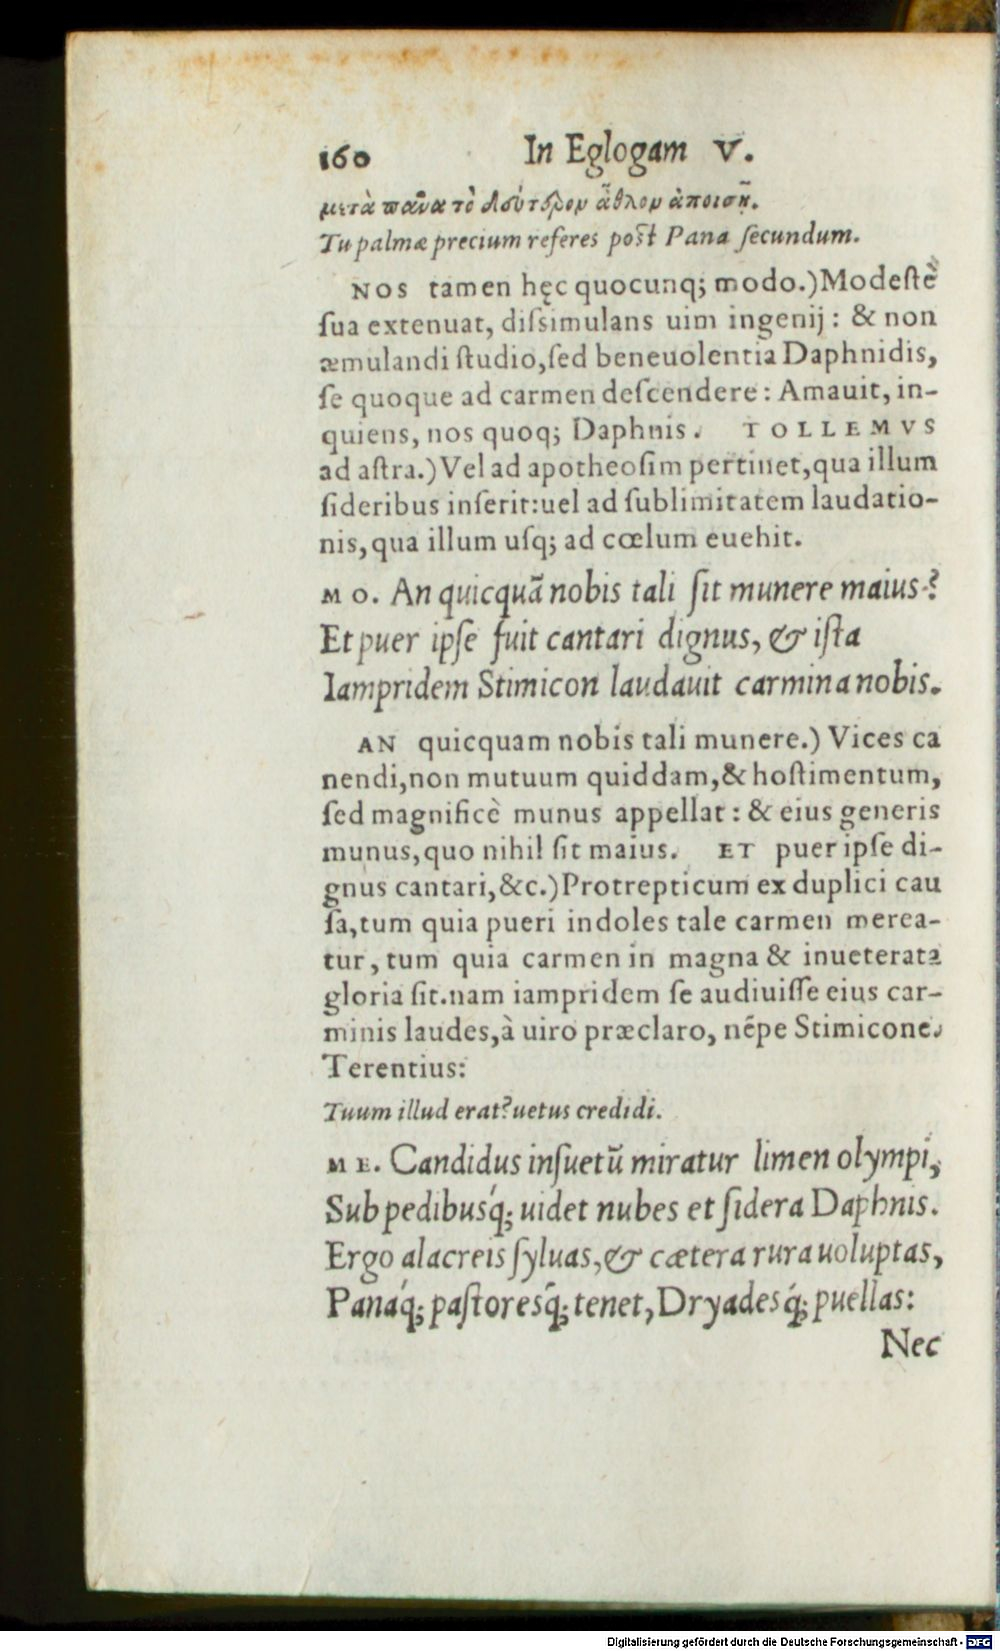 160 In Eglogam V.
μετὰ πᾶνα τὸ δεύτερον ἆθλον ἀποισῇ.
Tu palmæ precium referes post Pana secundum.
NOS tamen hęc quocunq; modo.) Modestè
sua extenuat, dissimulans uim ingenij: & non
æmulandi studio, sed beneuolentia Daphnidis,
se quoque ad carmen descendere: Amauit, in-
quiens, nos quoq; Daphnis. TOLLEMVS
ad astra.) Vel ad apotheosim pertinet, qua illum
sideribus inserit: uel ad sublimitatem laudatio-
nis, qua illum usq; ad cœlum euehit.
MO. An quicquã nobis tali sit munere maius?
Et puer ipse fuit cantari dignus, & ista
Iampridem Stimicon laudauit carmina nobis.
AN quicquam nobis tali munere.) Vices ca
nendi, non mutuum quiddam, & hostimentum,
sed magnificè munus appellat: & eius generis
munus, quo nihil sit maius. ET puer ipse di-
gnus cantari, &c.) Protrepticum ex duplici cau
sa, tum quia pueri indoles tale carmen merea-
tur, tum quia carmen in magna & inueterata
gloria sit. nam iampridem se audiuisse eius car-
minis laudes, à uiro præclaro, nẽpe Stimicone.
Terentius:
Tuum illud erat? uetus credidi.
ME. Candidus insuetũ miratur limen olympi,
Sub pedibusq́; uidet nubes et sidera Daphnis.
Ergo alacreis syluas, & cætera rura uoluptas,
Panaq́; pastoresq́; tenet, Dryadesq́; puellas:
Nec
Digitalisierung gefördert durch die Deutsche Forschungsgemeinschaft - DFG